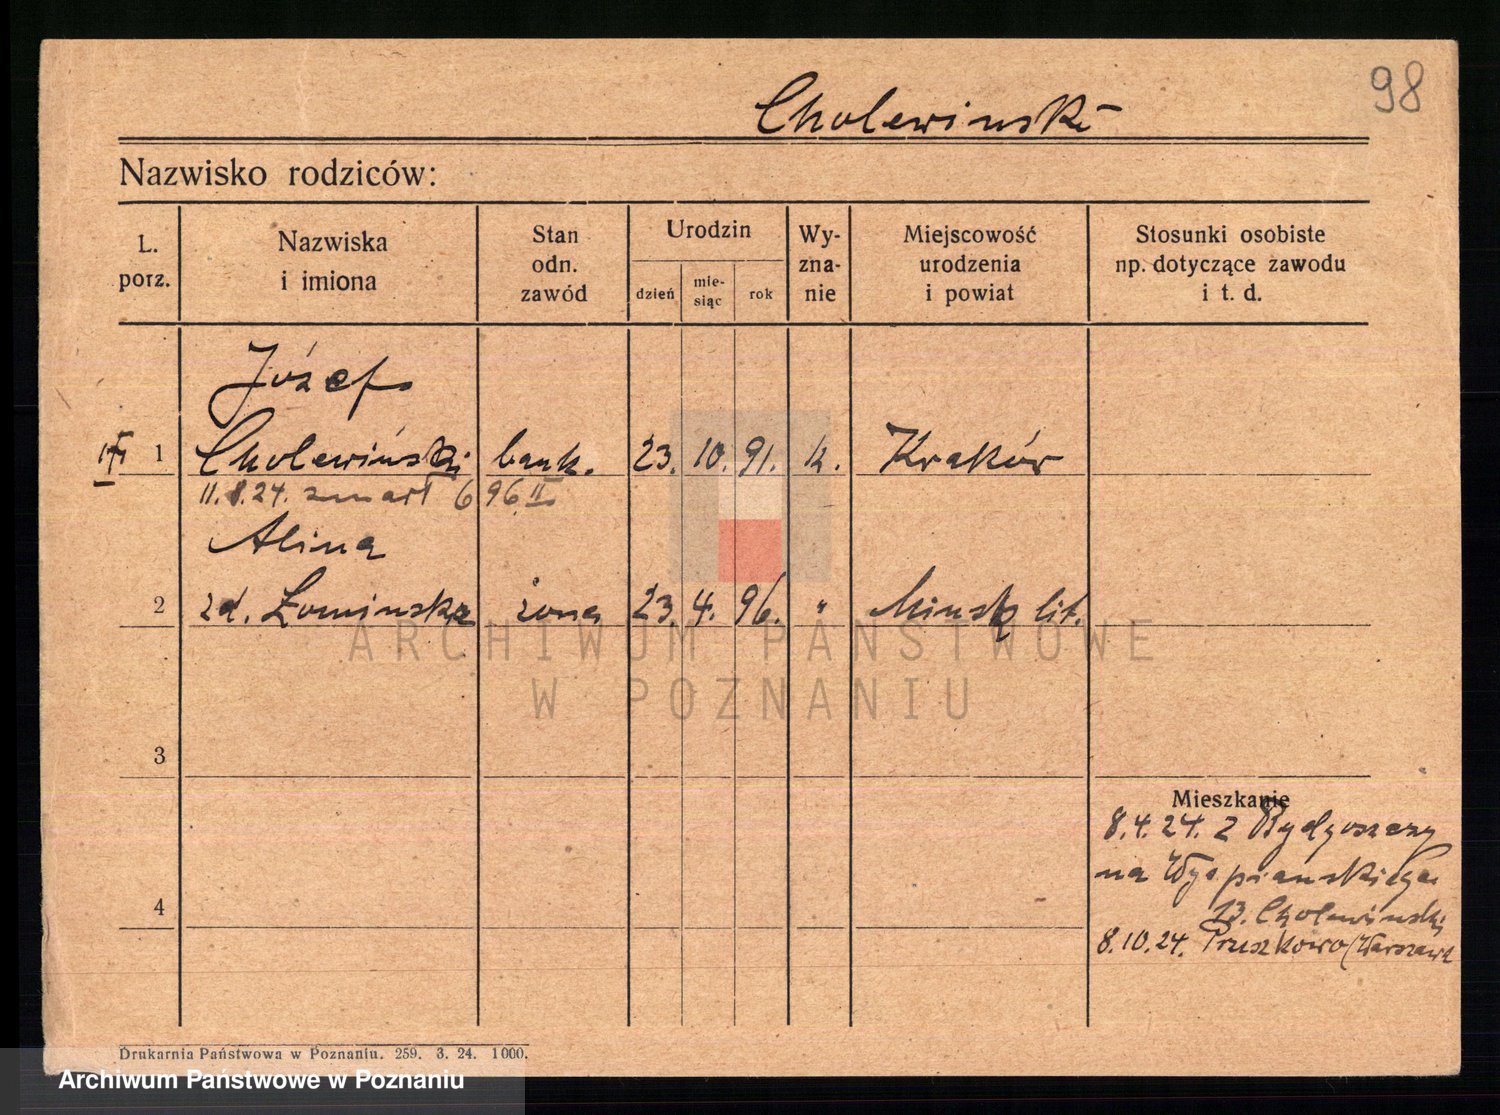 98
Cholewiński
Nazwisko rodziców:
L. porz.
Nazwiska i imiona
Stan odn. zawód
Urodzin
dzień
mie-siąc
rok
Wy-zna-nie
Miejscowość urodzenia i powiat
Stosunki osobiste np. dotyczące zawodu i t. d.
Józef
1 Cholewiński bank. 23. 10. 91. k. Kraków
11.8.24. zmarł 696 II
Alina
2 zd. Łomińska żona 23. 4. 96. " Mińsk lit.
3
4
Mieszkanie
8.4.24. z Bydgoszczy
na Wyspiańskiego
13. Cholewiński
8.10.24. Pruszkowo (Warszawa
Drukarnia Państwowa w Poznaniu. 259. 3. 24. 1000.
ARCHIWUM PAŃSTWOWE
W POZNANIU
Archiwum Państwowe w Poznaniu